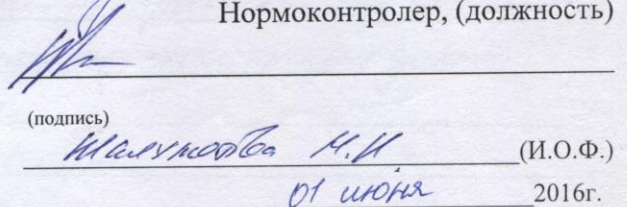 Нормоконтролер, (должность)
(подпись)
М.И (И.О.Ф.)
01 июня 2016г.